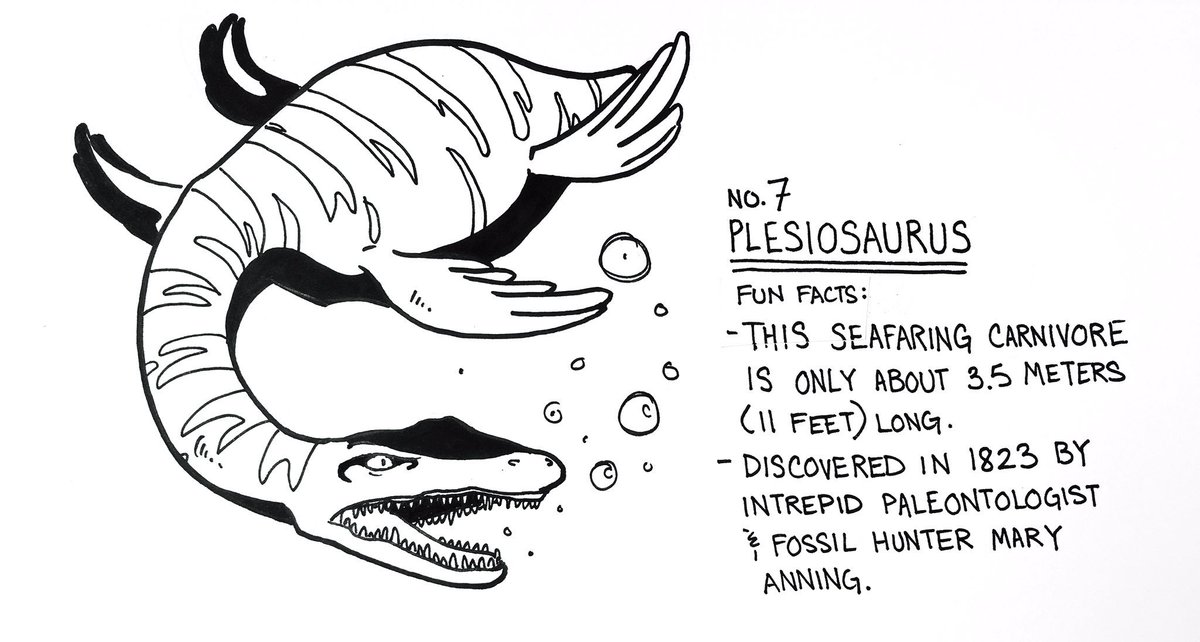 NO. 7
PLESIOSAURUS
FUN FACTS:
- THIS SEAFARING CARNIVORE
IS ONLY ABOUT 3.5 METERS
(11 FEET) LONG.
- DISCOVERED IN 1823 BY
INTREPID PALEONTOLOGIST
& FOSSIL HUNTER MARY
ANNING.